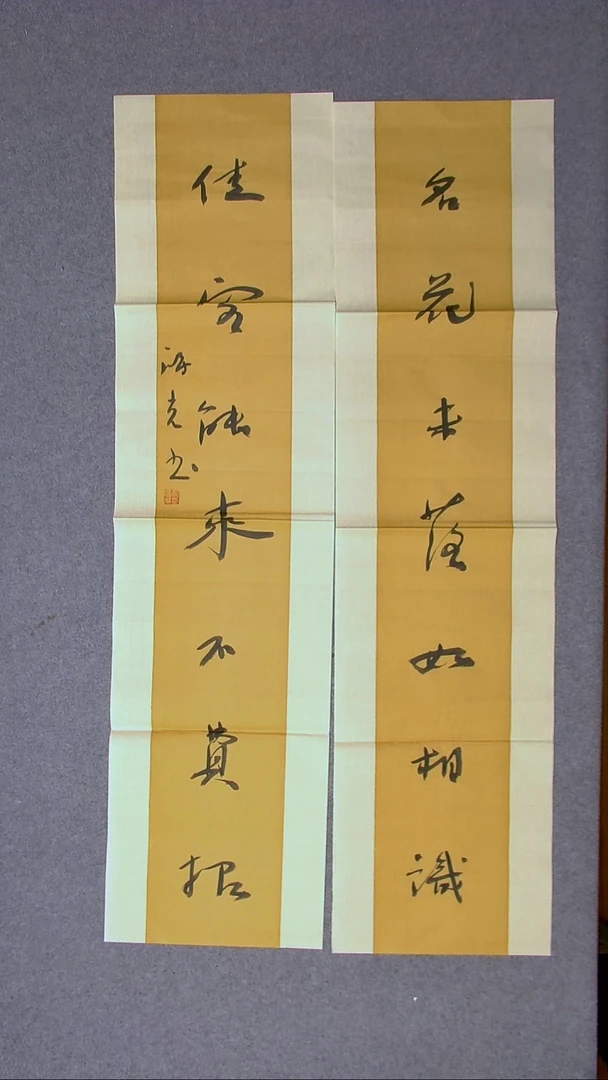 名花未落如相識
佳客能來不費招
克书